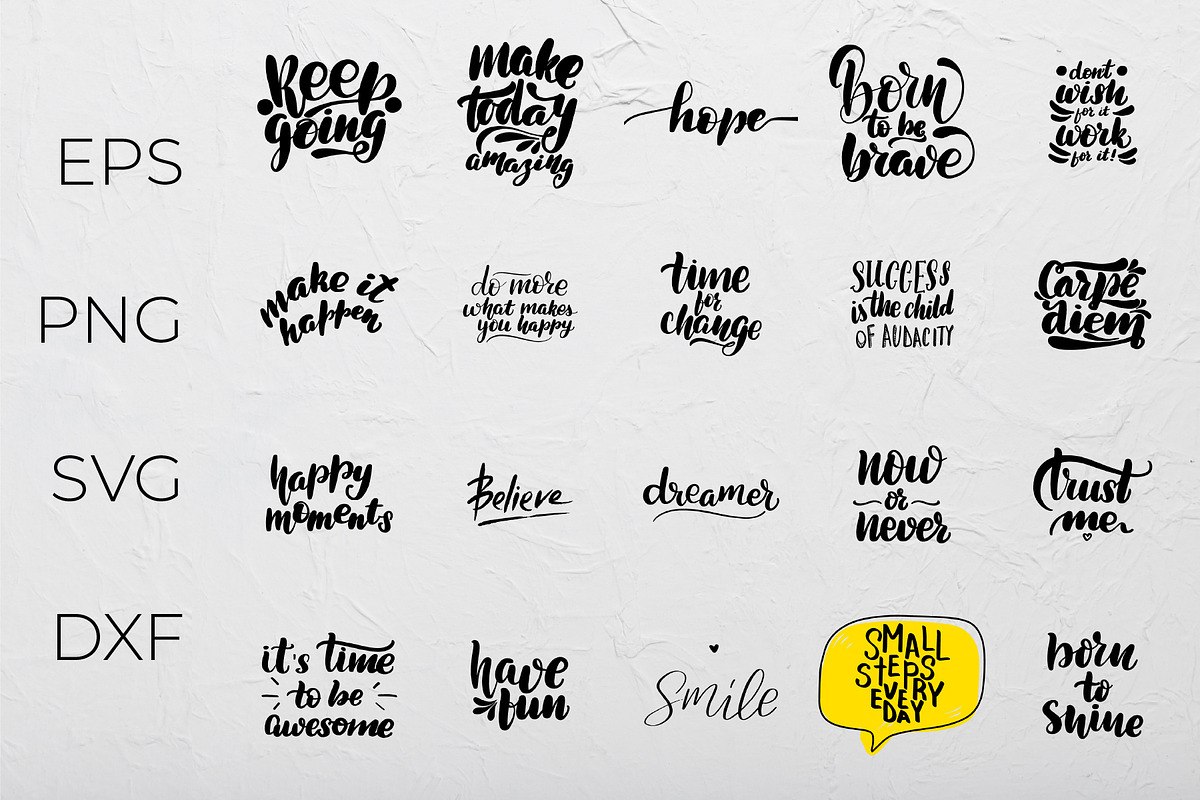 EPS
Keep
going
make
today
amazing
hope
Born
to be
brave
dont
wish
for it
work
for it!
PNG
make it
happen
do more
what makes
you happy
time
for
change
SUCCESS
is the child
OF AUDACITY
Carpe
diem
SVG
happy
moments
Believe
dreamer
now
or
never
trust
me
DXF
it's time
to be
awesome
have
fun
Smile
SMALL
STEPS
EVERY
DAY
born
to
shine